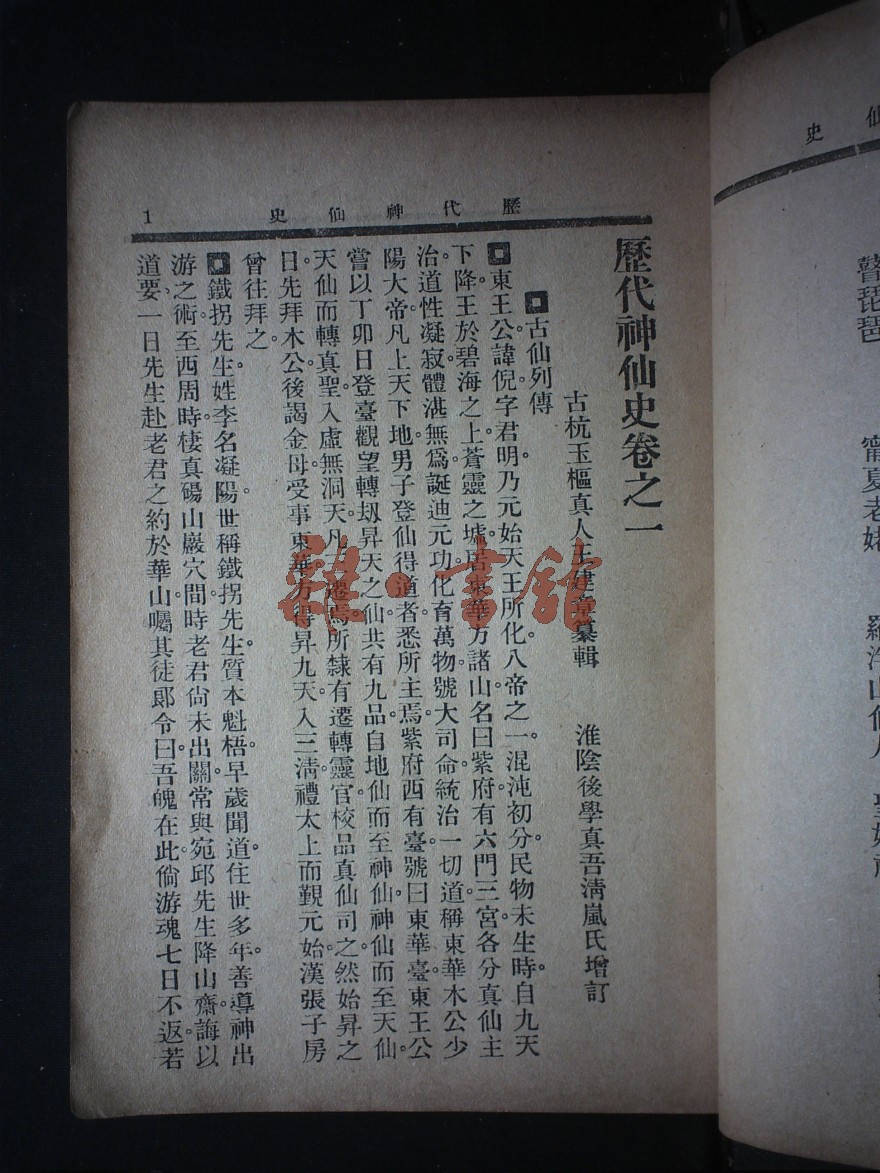 歷代神仙史 1
歷代神仙史卷之一
古杭玉樞真人王建章纂輯 淮陰後學真吾淸嵐氏增訂
古仙列傳
東王公諱倪字君明乃元始天王所化八帝之一混沌初分民物未生時。自九天
下降王於碧海之上蒼靈之墟居東華方諸山名曰紫府有六門三宮各分真仙主
治。道性凝寂體湛無爲誕迪元功化育萬物。號大司命統治一切道稱東華木公少
陽大帝凡上天下地男子登仙得道者悉所主焉紫府西有臺號曰東華臺東王公
嘗以丁卯日登臺觀望轉刼昇天之仙共有九品自地仙而至神仙神仙而至天仙。
天仙而轉真聖入虛無洞天。凡三遷焉所隸有遷轉靈官校品真仙司之然始昇之
日先拜木公後謁金母受事東華方得昇九天入三淸禮太上而覲元始漢張子房
曾往拜之。
鐵拐先生姓李名凝陽。世稱鐵拐先生。質本魁梧。早歲聞道。住世多年。善導神出
游之術。至西周時棲真碭山巖穴間。時老君尙未出關。常與宛邱先生降山齋誨以
道要。一日先生赴老君之約於華山。囑其徒郞令曰吾魄在此倘游魂七日不返若
仙史
瞽琵琶
甯夏老姥
羅浮山仙人
雜·書館